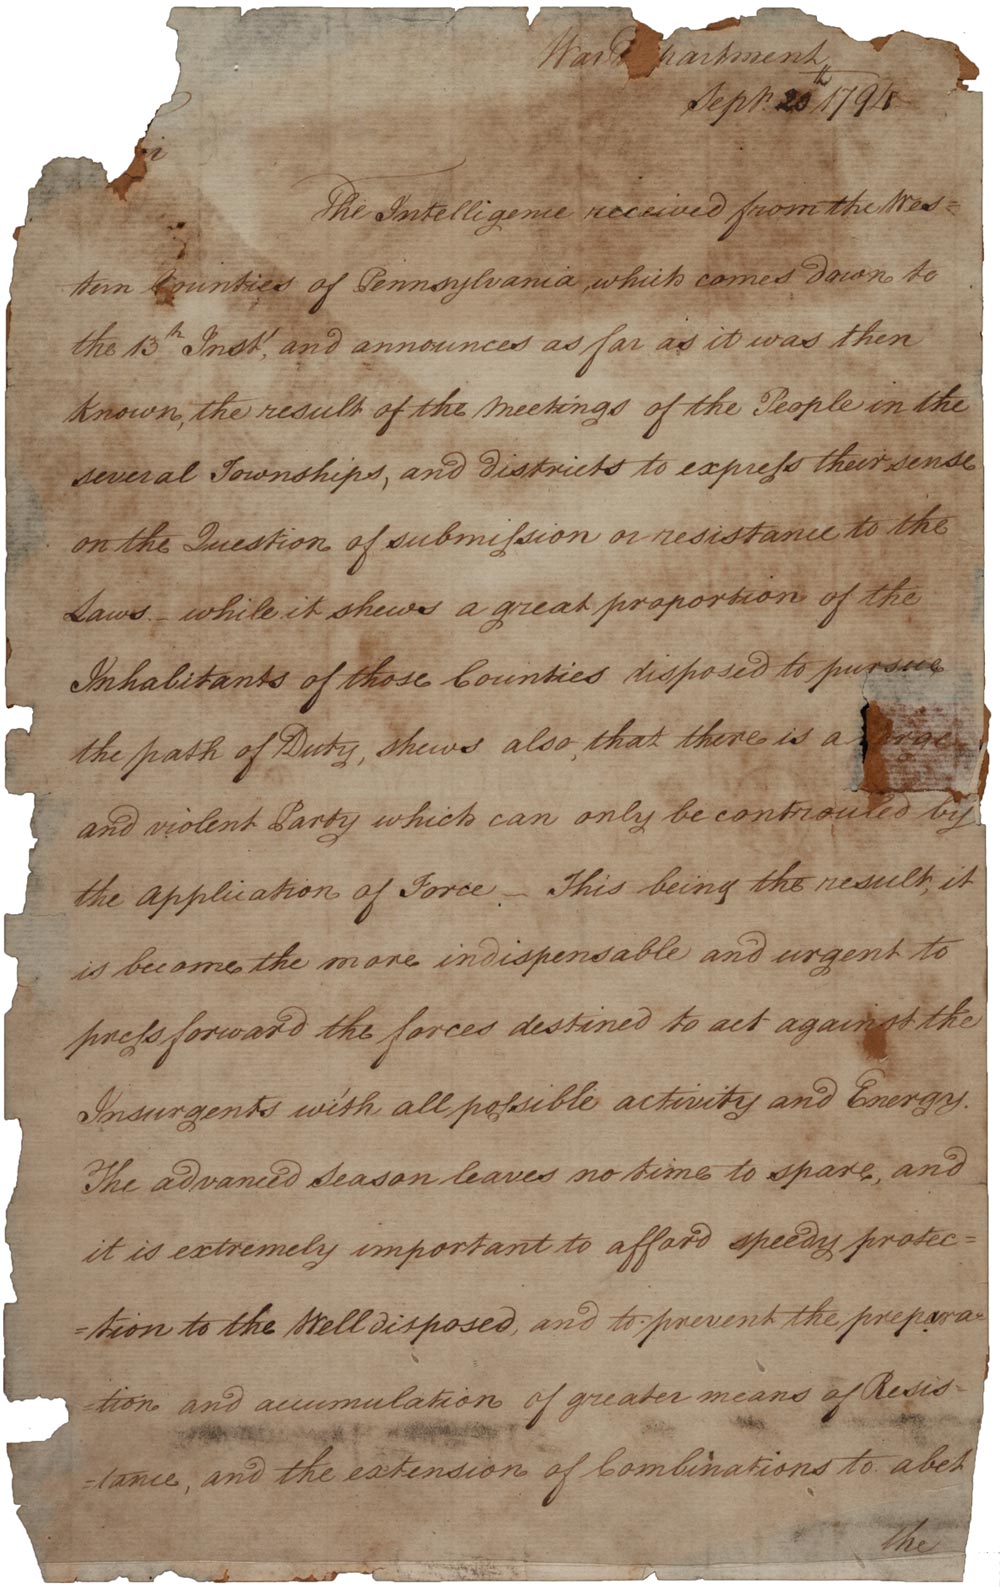 War Department
Sept. 20th 1794
The Intelligence received from the Wes=
tern Counties of Pennsylvania, which comes down to
the 13th Inst', and announces as far as it was then
known, the result of the meetings of the People in the
several Townships, and districts to express their sense
on the Question of submission or resistance to the
Laws – while it shews a great proportion of the
Inhabitants of those Counties disposed to pursue
the path of Duty, shews also, that there is a large
and violent Party which can only be controuled by
the application of Force – This being the result, it
is become the more indispensable and urgent to
press forward the forces destined to act against the
Insurgents with all possible activity and Energy.
The advanced season leaves no time to spare, and
it is extremely important to afford speedy protec=
=tion to the Well disposed, and to prevent the prepara=
=tion and accumulation of greater means of Resis=
=tance, and the extension of Combinations to abet
the